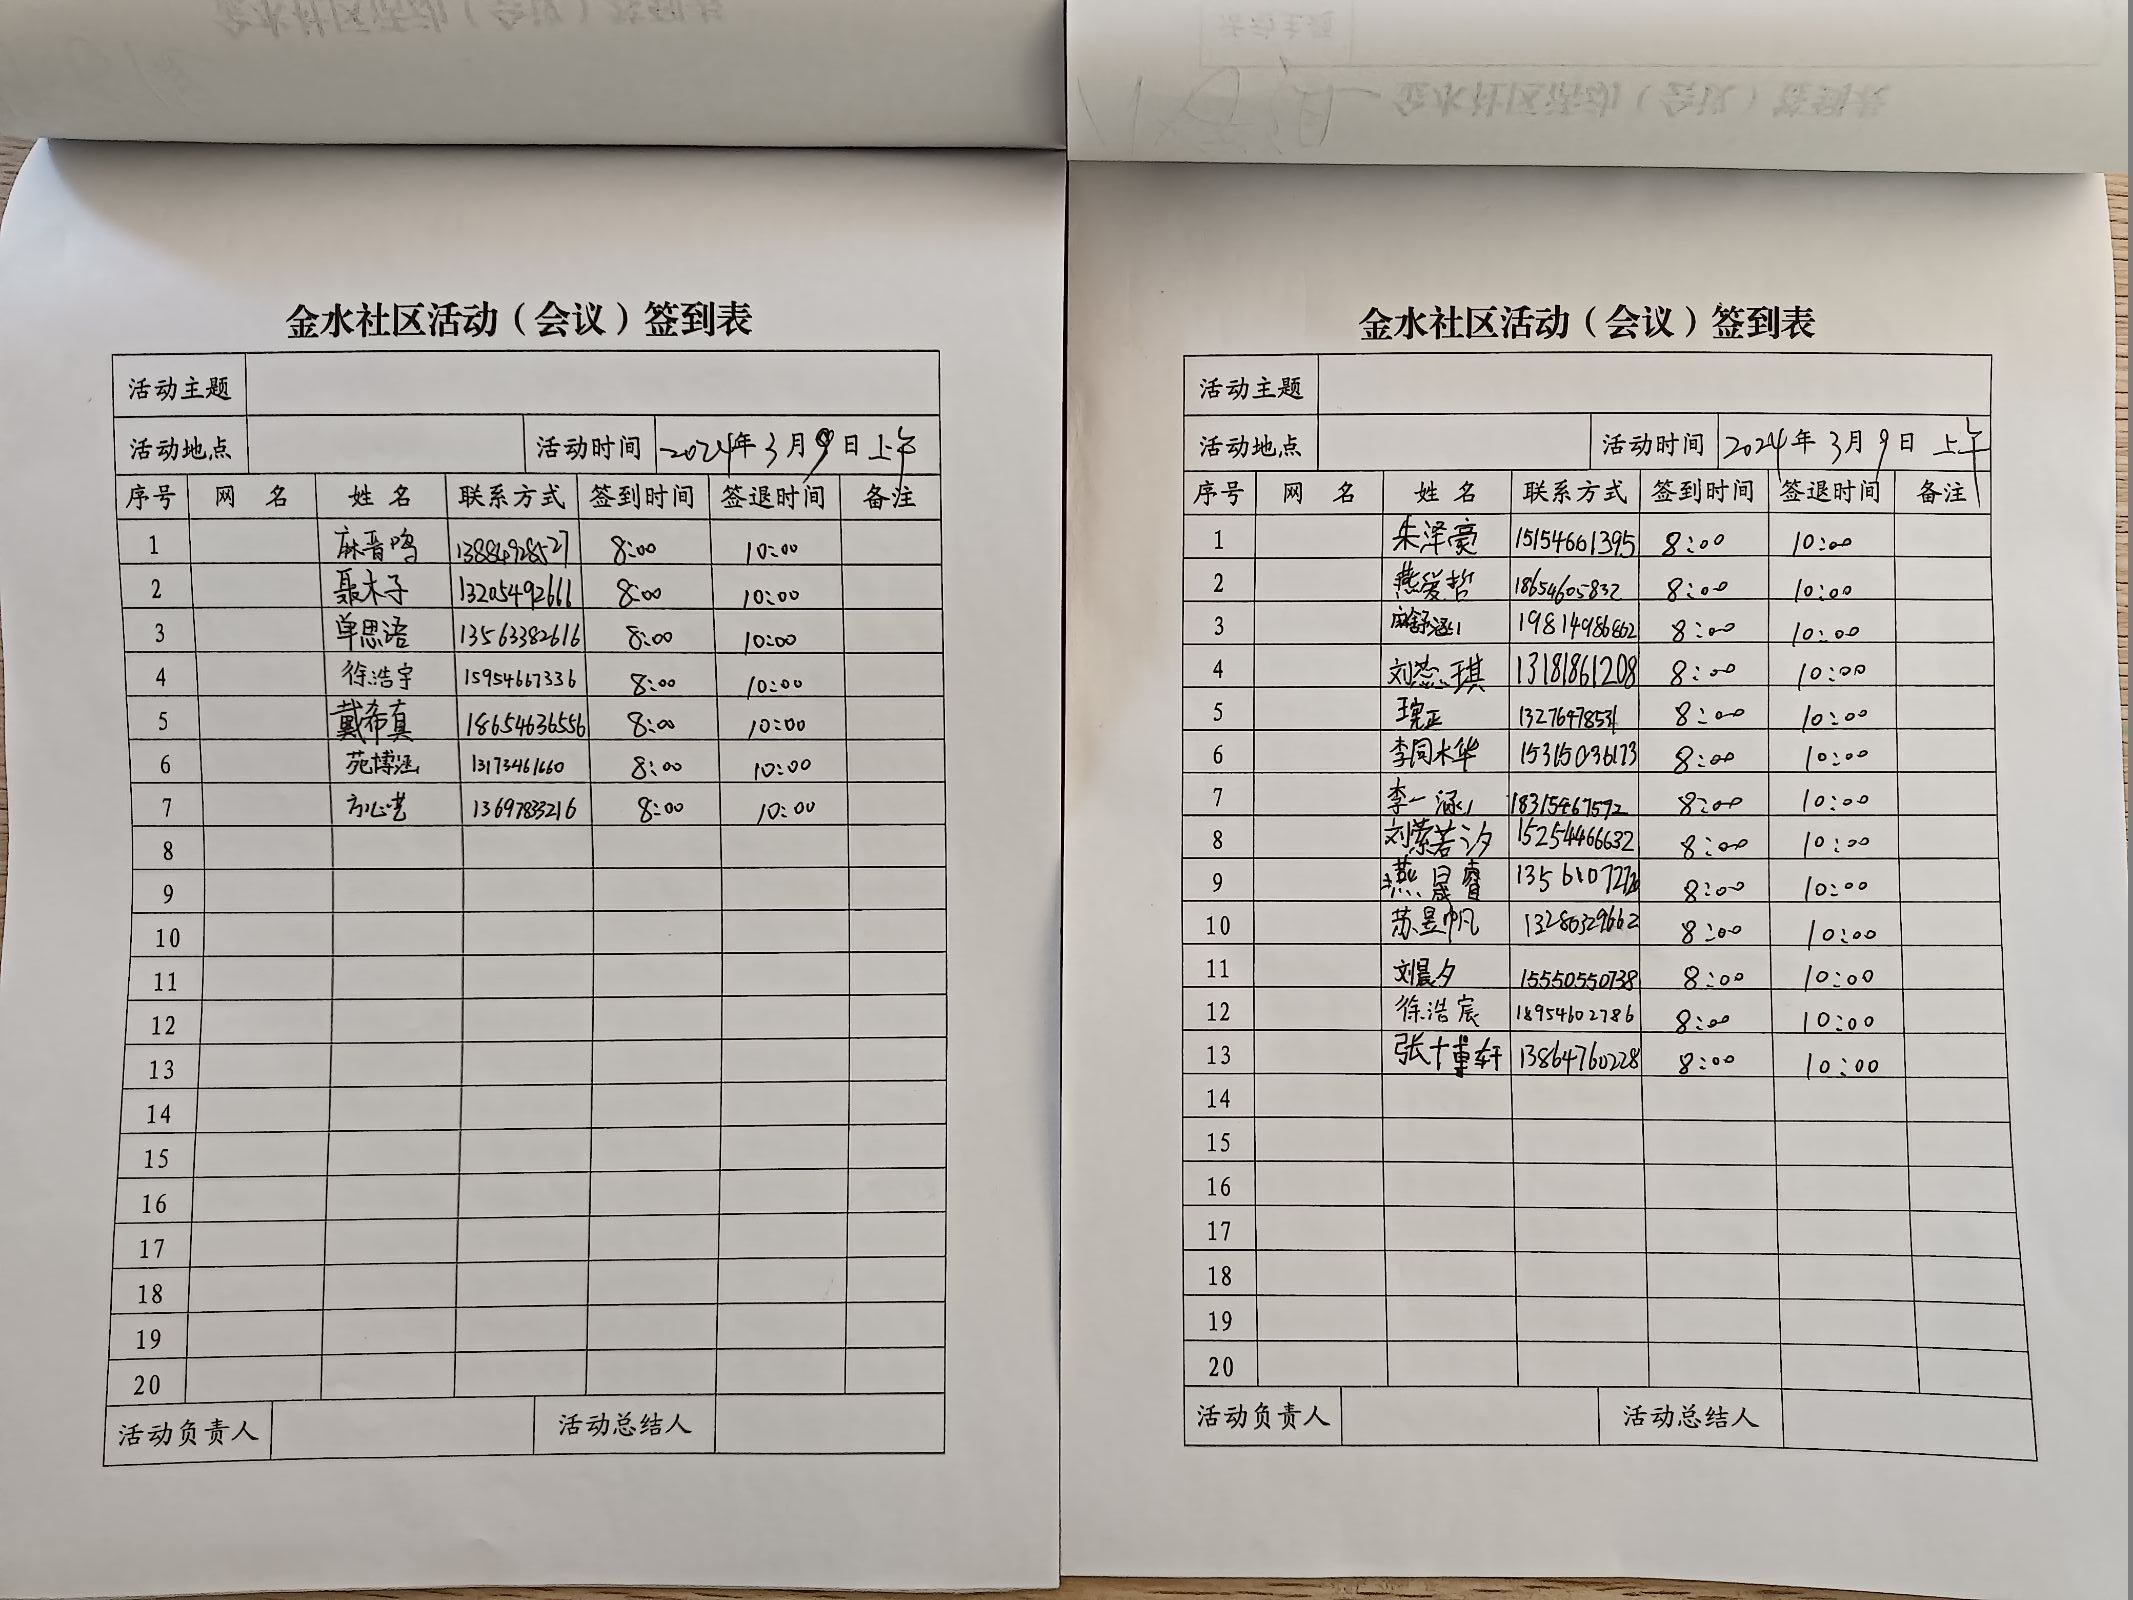 金水社区活动（会议）签到表
活动主题
活动地点 活动时间 2024年3月9日上午
序号 网 名 姓 名 联系方式 签到时间 签退时间 备注
1 麻晋鸣 13884928527 8:00 10:00
2 聂木子 13205492661 8:00 10:00
3 单思语 13563382616 8:00 10:00
4 徐浩宇 15954667336 8:00 10:00
5 戴希真 18654636556 8:00 10:00
6 苑博涵 13173461660 8:00 10:00
7 方心艺 13697833216 8:00 10:00
8
9
10
11
12
13
14
15
16
17
18
19
20
活动负责人 活动总结人
金水社区活动（会议）签到表
活动主题
活动地点 活动时间 2024年3月9日上午
序号 网 名 姓 名 联系方式 签到时间 签退时间 备注
1 朱泽豪 15154661395 8:00 10:00
2 燕爱哲 18654605832 8:00 10:00
3 麻舒涵 19814986862 8:00 10:00
4 刘蕊琪 13181861208 8:00 10:00
5 8:00 10:00
6 李同木华 15315036173 8:00 10:00
7 李一涵 18315467592 8:00 10:00
8 刘萦若汐 15254466632 8:00 10:00
9 燕晟睿 8:00 10:00
10 苏昱帆 13280329662 8:00 10:00
11 刘晨夕 15550550738 8:00 10:00
12 徐浩宸 18954602786 8:00 10:00
13 张博轩 13864760228 8:00 10:00
14
15
16
17
18
19
20
活动负责人 活动总结人